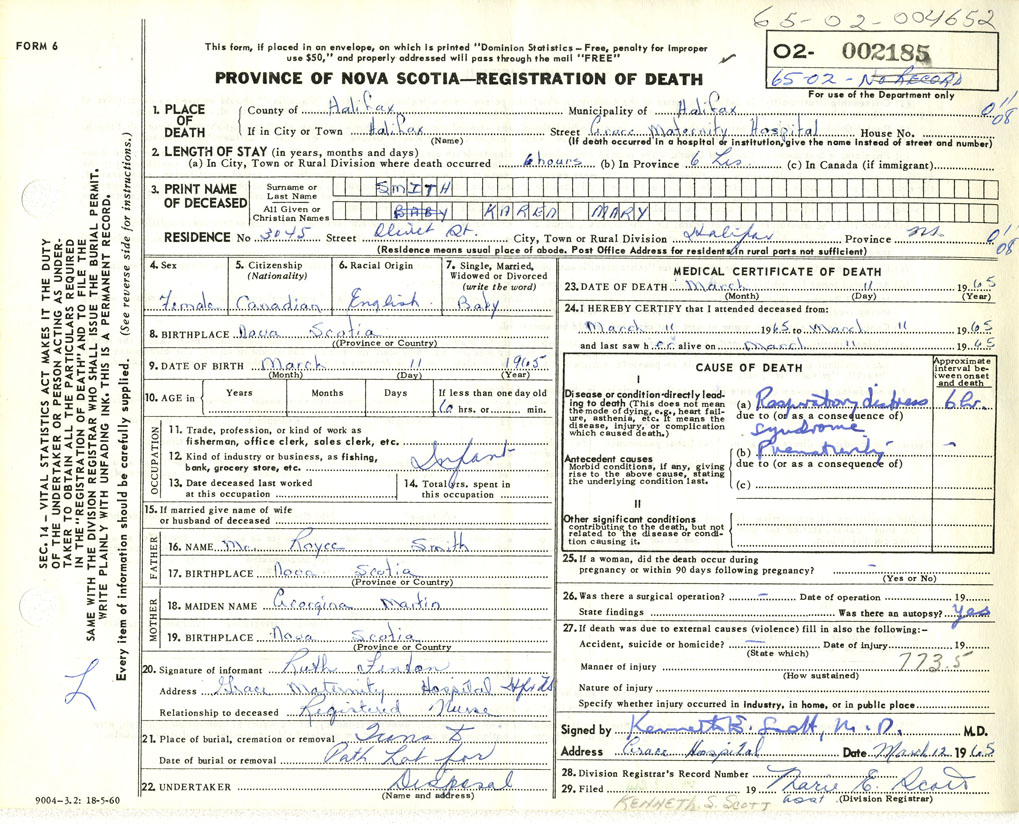 65-02-004652
FORM 6
This form, if placed in an envelope, on which is printed "Dominion Statistics – Free, penalty for improper
use $50," and properly addressed will pass through the mail "FREE"
02- 002185
65-02 - No RECORD
PROVINCE OF NOVA SCOTIA—REGISTRATION OF DEATH
For use of the Department only
SEC. 14 – VITAL STATISTICS ACT MAKES IT THE DUTY
OF THE UNDERTAKER OR PERSON ACTING AS UNDER-
TAKER TO OBTAIN ALL THE PARTICULARS REQUIRED
IN THE "REGISTRATION OF DEATH" AND TO FILE THE
SAME WITH THE DIVISION REGISTRAR WHO SHALL ISSUE THE BURIAL PERMIT.
WRITE PLAINLY WITH UNFADING INK. THIS IS A PERMANENT RECORD.
Every item of information should be carefully supplied. (See reverse side for instructions.)
1. PLACE OF DEATH
County of Halifax Municipality of Halifax
If in City or Town Halifax Street Grace Maternity Hospital House No.
(Name) (If death occurred in a hospital or institution, give the name instead of street and number)
2. LENGTH OF STAY (in years, months and days)
(a) In City, Town or Rural Division where death occurred 6 hours (b) In Province 6 (c) In Canada (if immigrant)
3. PRINT NAME OF DECEASED
Surname or Last Name SMITH
All Given or Christian Names BABY KAREN MARY
RESIDENCE No 3045 Street Olivet St. City, Town or Rural Division Halifax Province N.S.
(Residence means usual place of abode. Post Office Address for residents in rural parts not sufficient)
4. Sex Female
5. Citizenship (Nationality) Canadian
6. Racial Origin English
7. Single, Married, Widowed or Divorced (write the word) Baby
8. BIRTHPLACE Nova Scotia
(Province or Country)
9. DATE OF BIRTH March 11 1965
(Month) (Day) (Year)
10. AGE in Years Months Days If less than one day old
6 hrs. or min.
OCCUPATION
11. Trade, profession, or kind of work as
fisherman, office clerk, sales clerk, etc.
12. Kind of industry or business, as fishing,
bank, grocery store, etc. Infant
13. Date deceased last worked
at this occupation
14. Total yrs. spent in
this occupation
15. If married give name of wife
or husband of deceased
FATHER
16. NAME Mr. Royce Smith
17. BIRTHPLACE Nova Scotia
(Province or Country)
MOTHER
18. MAIDEN NAME Georgina Martin
19. BIRTHPLACE Nova Scotia
(Province or Country)
20. Signature of informant Ruth
Address Grace Maternity Hospital
Relationship to deceased Registered Nurse
21. Place of burial, cremation or removal Trans to
Date of burial or removal Path Lab for
22. UNDERTAKER Disposal
(Name and address)
9004-3.2: 18-5-60
MEDICAL CERTIFICATE OF DEATH
23. DATE OF DEATH March 11 1965
(Month) (Day) (Year)
24. I HEREBY CERTIFY that I attended deceased from:
March 11 1965 to March 11 1965
and last saw her alive on March 11 1965
CAUSE OF DEATH
Approximate interval between onset and death
I
Disease or condition directly lead-
ing to death (This does not mean
the mode of dying, e.g., heart fail-
ure, asthenia, etc. It means the
disease, injury, or complication
which caused death.)
(a) Respiratory distress 6 hr.
due to (or as a consequence of)
syndrome
Antecedent causes
Morbid conditions, if any, giving
rise to the above cause, stating
the underlying condition last.
(b) Prematurity –
due to (or as a consequence of)
(c)
II
Other significant conditions
contributing to the death, but not
related to the disease or condi-
tion causing it.
25. If a woman, did the death occur during
pregnancy or within 90 days following pregnancy? –
(Yes or No)
26. Was there a surgical operation? – Date of operation 19
State findings Was there an autopsy? Yes
27. If death was due to external causes (violence) fill in also the following:–
Accident, suicide or homicide? – Date of injury 19
(State which)
Manner of injury 773.5
(How sustained)
Nature of injury
Specify whether injury occurred in industry, in home, or in public place
Signed by Kenneth S. Scott, M.D. M.D.
Address Grace Hospital Date March 12 1965
28. Division Registrar's Record Number
29. Filed 19 Marie E. Scott
KENNETH S. SCOTT asst (Division Registrar)